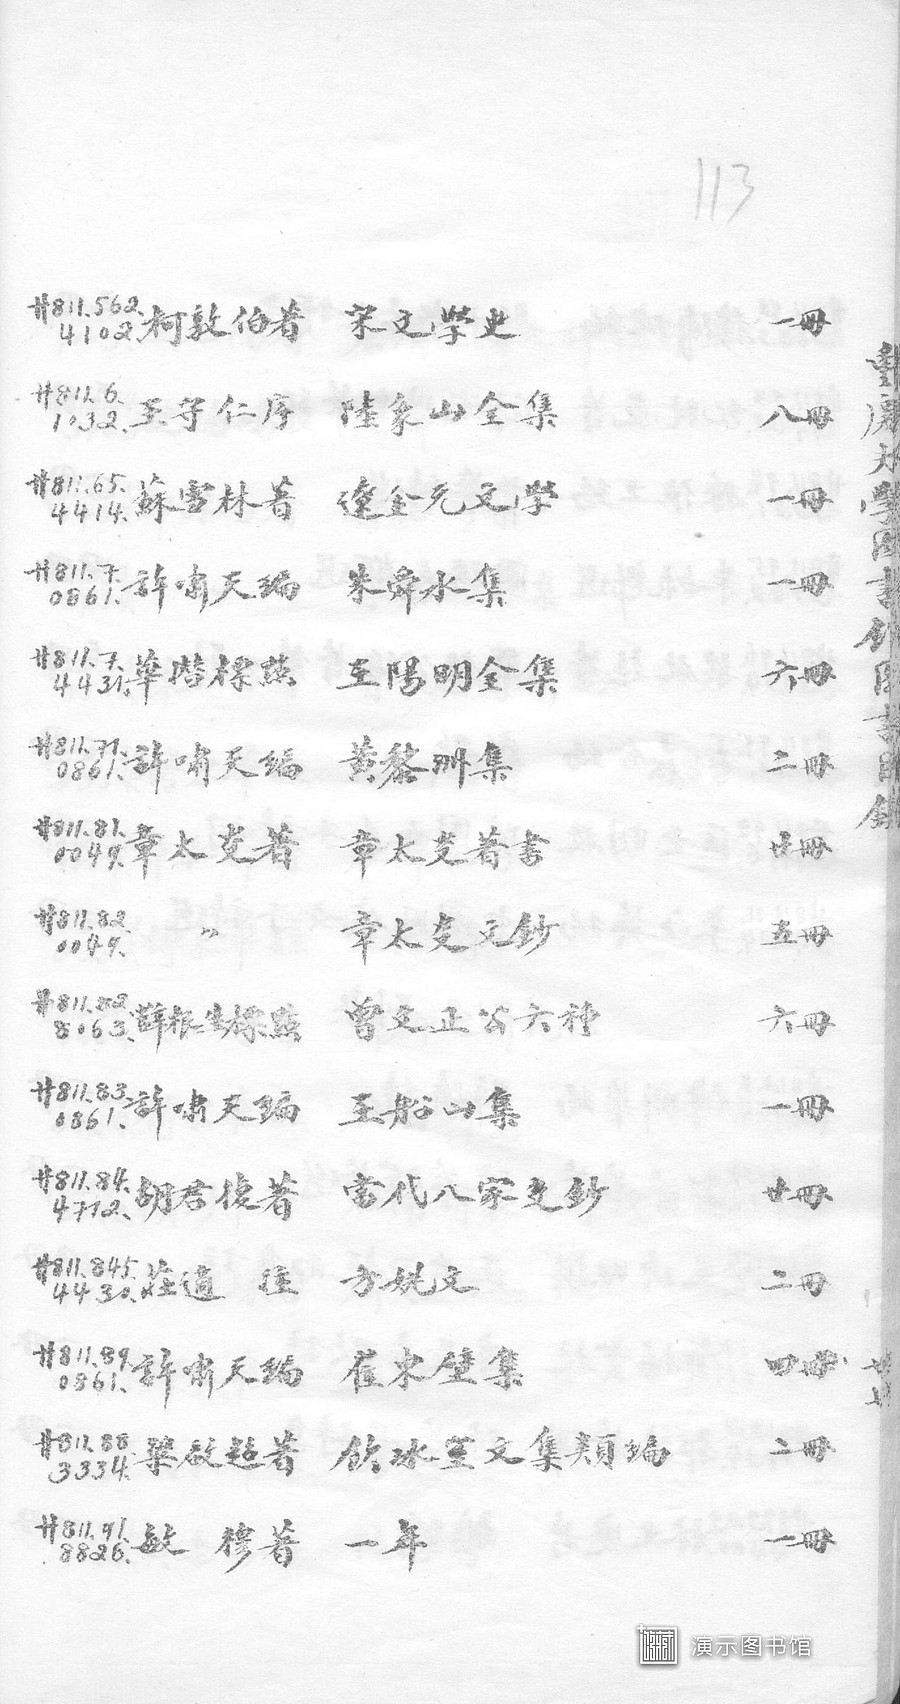 113
廿811.562. 4102. 柯敦伯著 宋文學史 一冊
廿811.6. 1032. 王守仁序 陸象山全集 八冊
廿811.65. 4414. 蘇雪林著 遼金元文學 一冊
廿811.7. 0861. 許嘯天編 朱舜水集 一冊
廿811.7. 4431. 華揩標點 王陽明全集 六冊
廿811.71. 0861. 許嘯天編 黃黎洲集 二冊
廿811.81. 0049. 章太炎著 章太炎著書 廿冊
廿811.82 0049. 〃 章太炎文鈔 五冊
廿811.82. 8063. 薛根生標點 曾文正公六種 六冊
廿811.83. 0861. 許嘯天編 王船山集 一冊
廿811.84. 4712. 胡君復著 當代八家文鈔 廿冊
廿811.845. 4430. 莊適 註 方姚文 二冊
廿811.89. 0861. 許嘯天編 崔東壁集 四冊
廿811.88. 3334. 梁啟超著 飲冰室文集類編 二冊
廿811.91. 8826. 敏 穆著 一年 一冊
重慶大學圖書館圖書目錄
演示图书馆